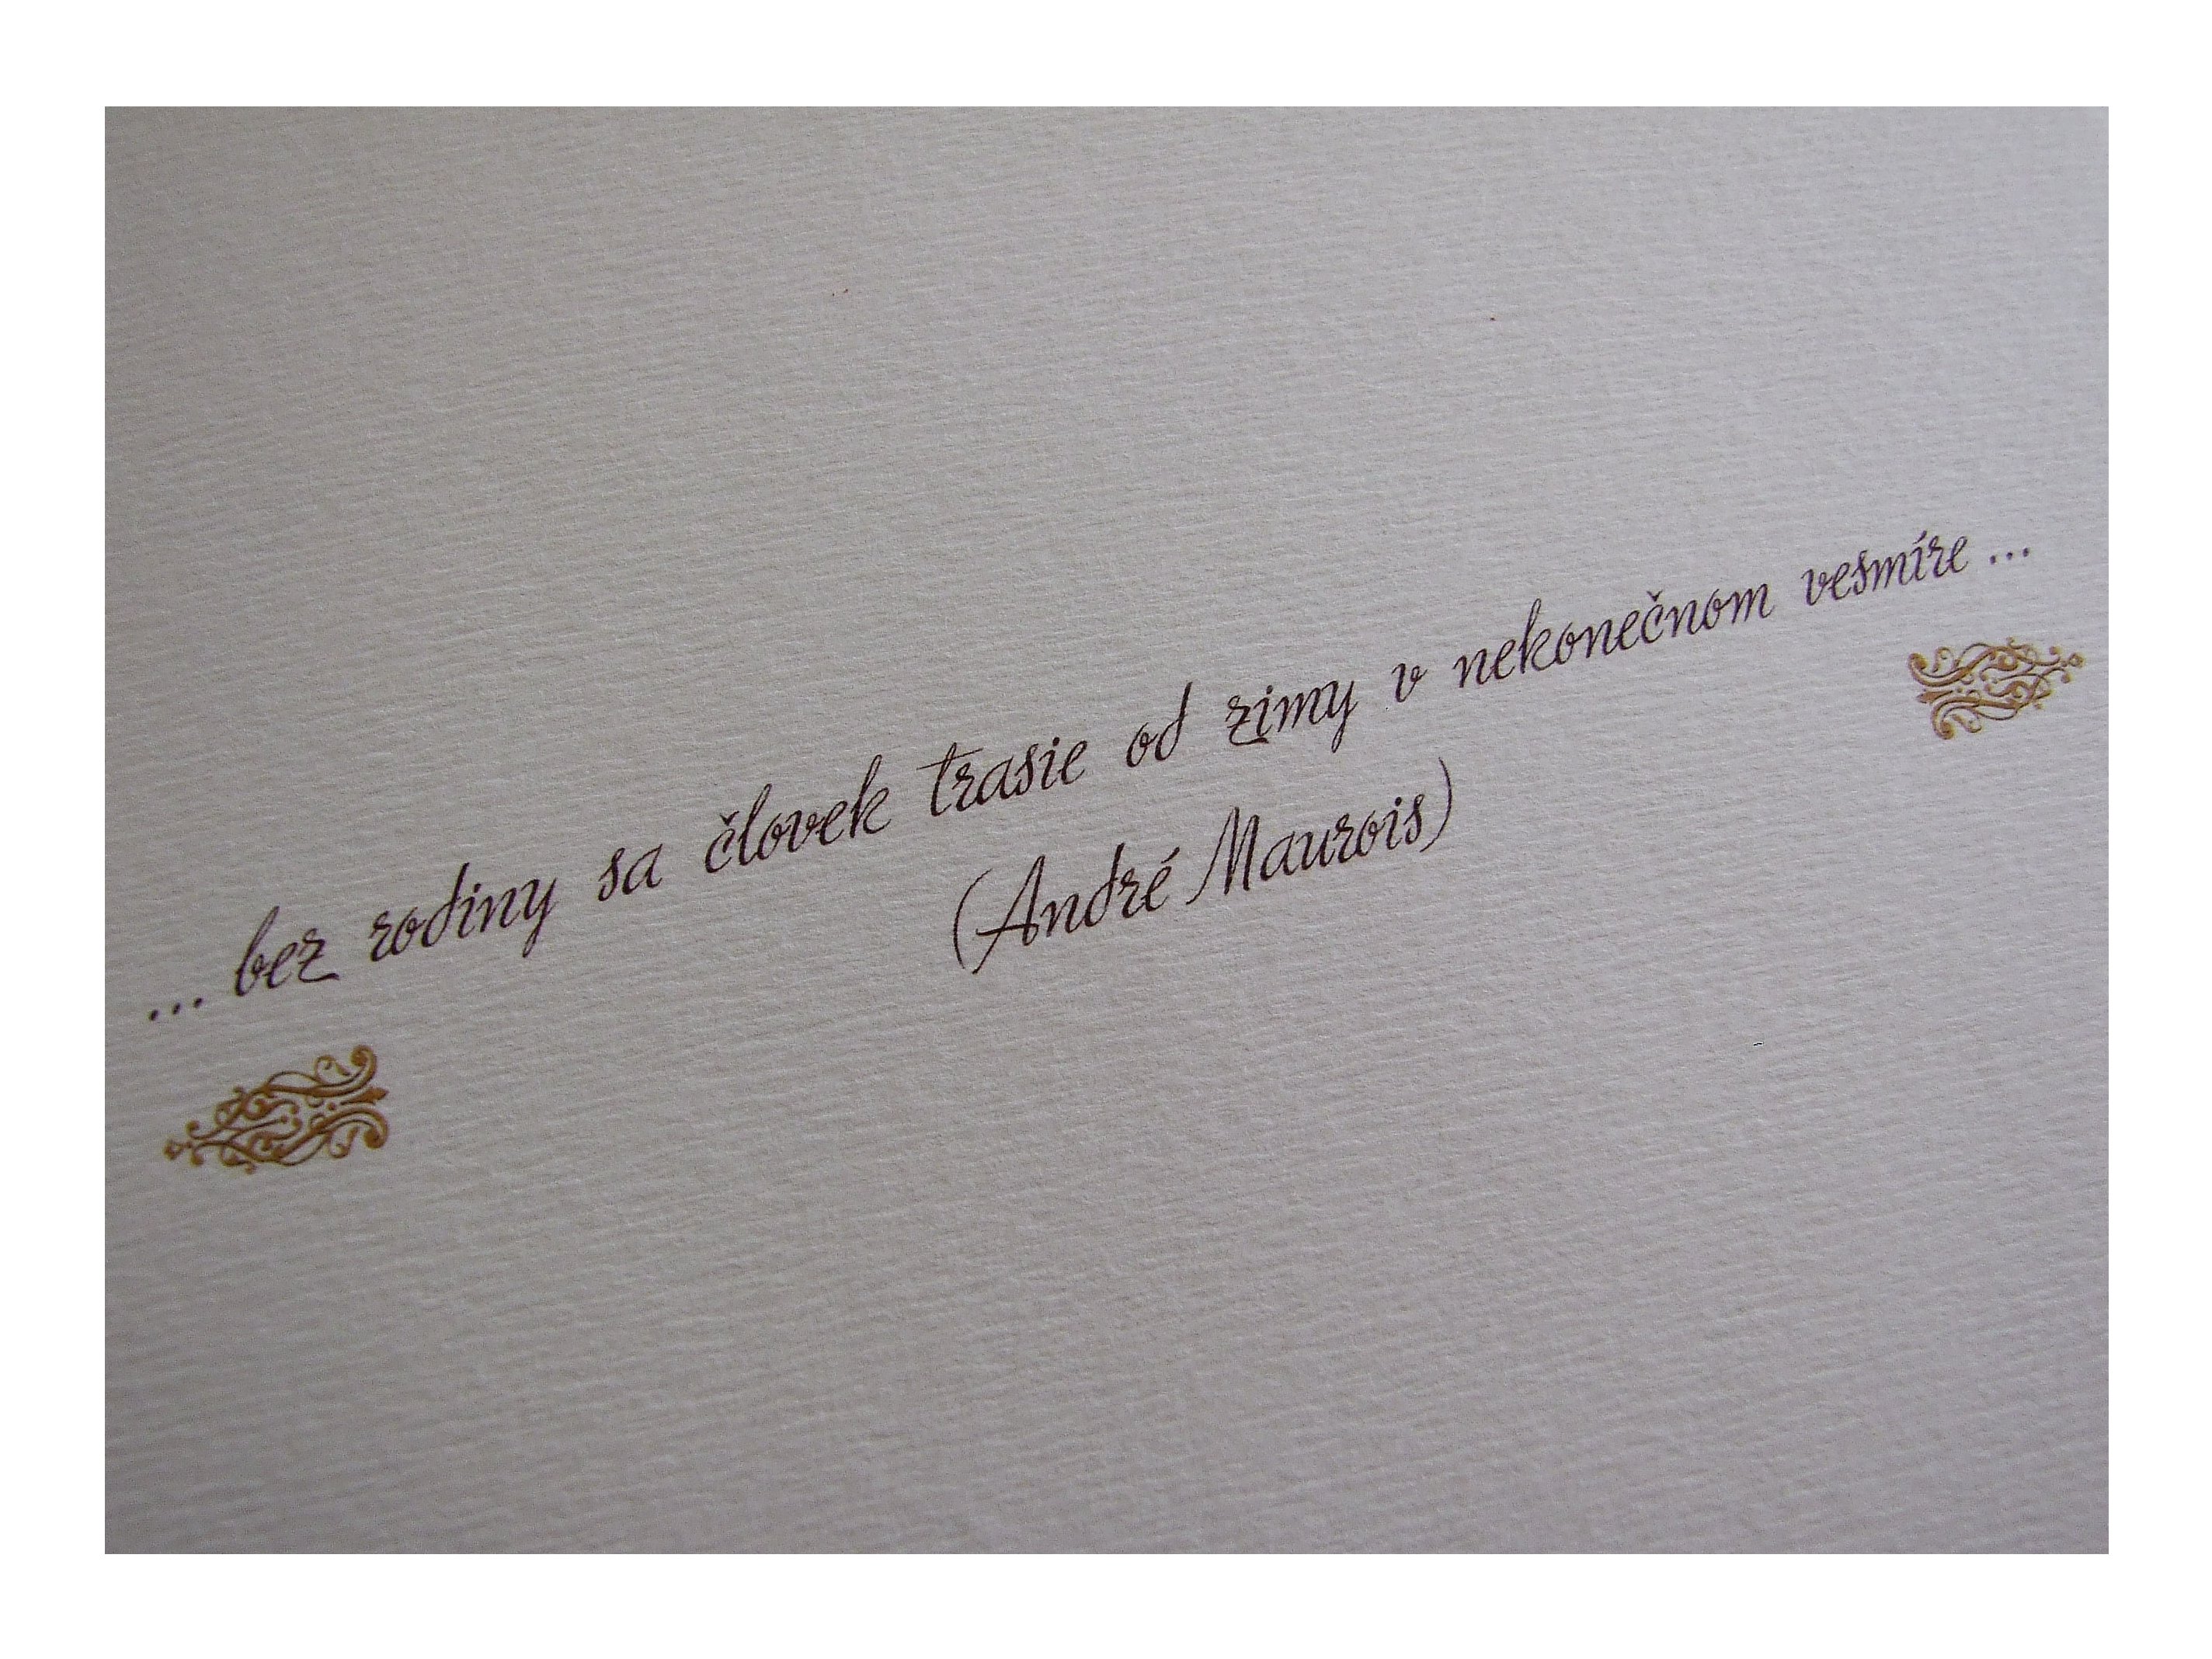 ... bez rodiny sa človek trasie od zimy v nekonečnom vesmíre ...
(André Maurois)